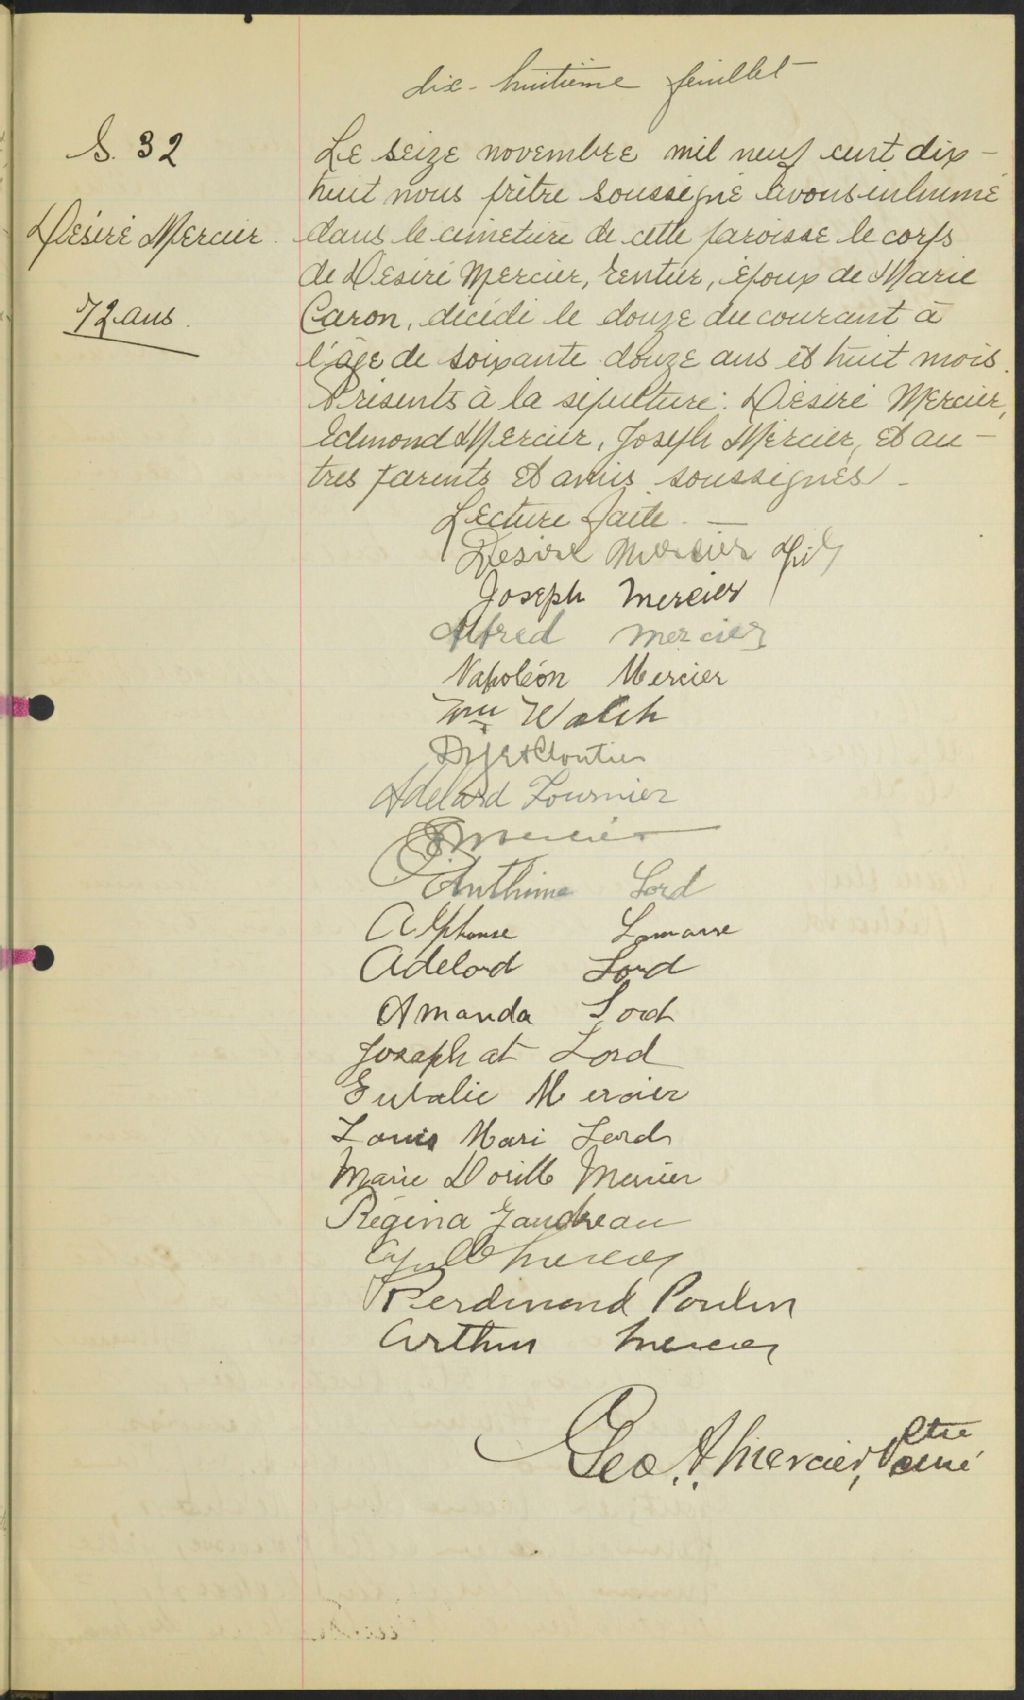 dix-huitième feuillet
S. 32
Désiré Mercier
72 ans.
Le seize novembre mil neuf cent dix-
huit nous prêtre soussigné avons inhumé
dans le cimetière de cette paroisse le corps
de Désiré Mercier, rentier, époux de Marie
Caron, décédé le douze du courant à
l'âge de soixante douze ans et huit mois.
Présents à la sépulture: Désiré Mercier,
Edmond Mercier, Joseph Mercier, et au-
tres parents et amis soussignés.
Lecture faite.
Desire Mercier fils
Joseph Mercier
Alfred Mercier
Napoléon Mercier
Wm Walsh
Cloutier
Adelard Fournier
Mercier
Anthime Lord
Alphonse Lamarre
Adelard Lord
Amanda Lord
Josaphat Lord
Eulalie Mercier
Louis Mari Lord
Marie Mercier
Régina Gaudreau
Cyrille Mercier
Ferdinand Poulin
Arthur Mercier
Geo. A. Mercier, Ptre
curé